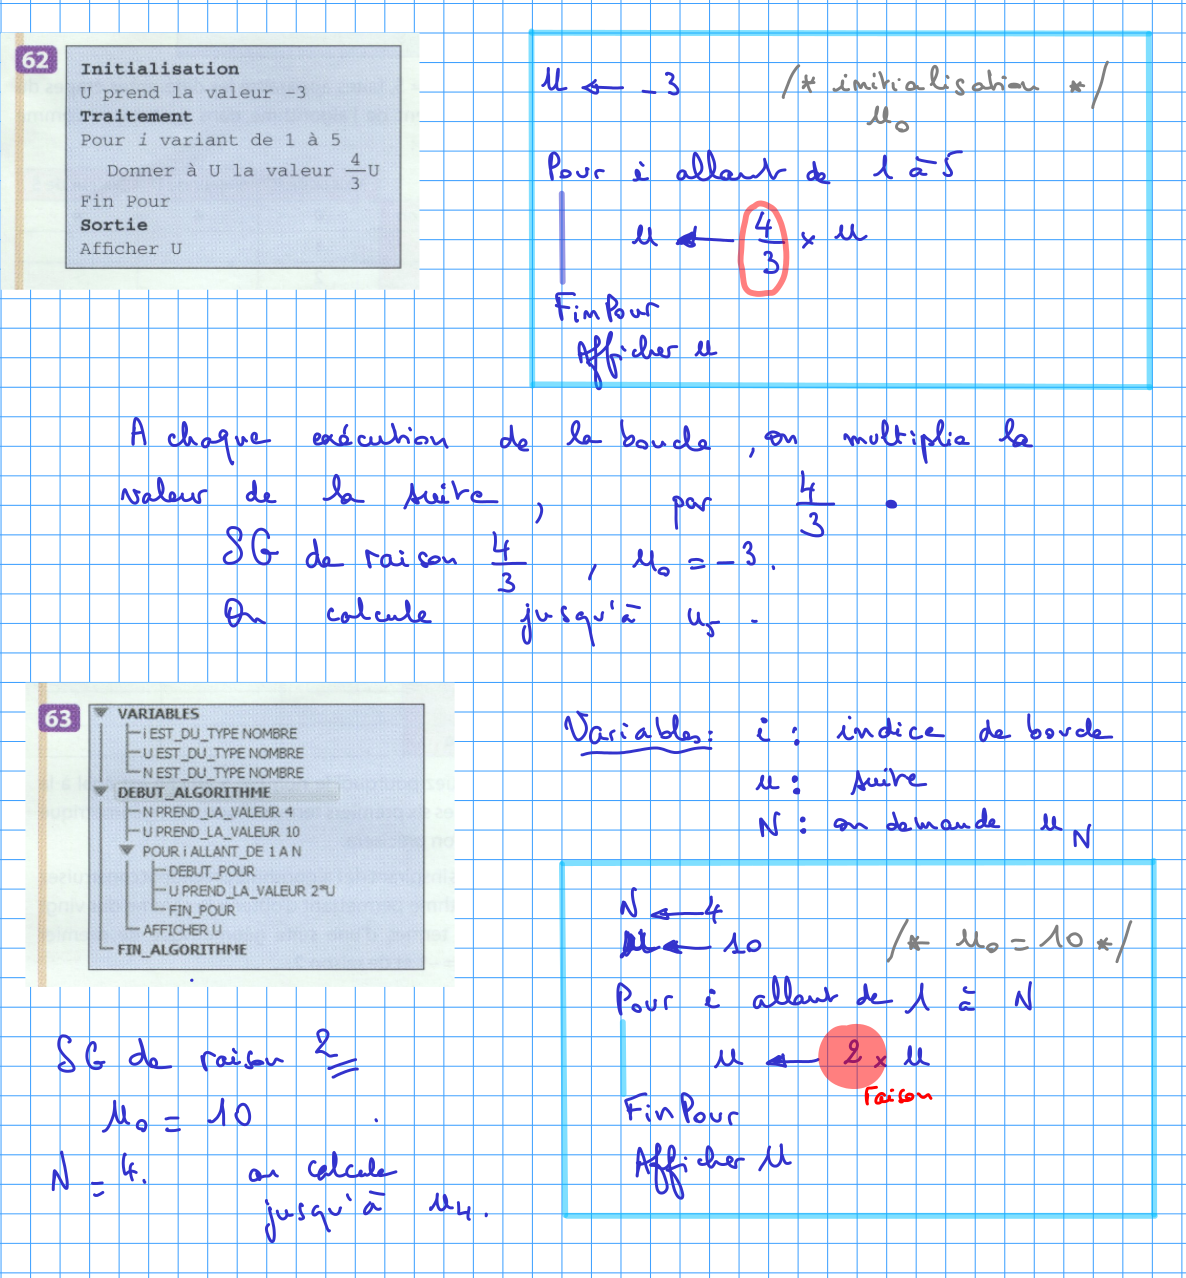 62
Initialisation
U prend la valeur -3
Traitement
Pour i variant de 1 à 5
Donner à U la valeur 4/3 U
Fin Pour
Sortie
Afficher U
u ← -3 /* initialisation */
u₀
Pour i allant de 1 à 5
u ← 4/3 × u
FinPour
Afficher u
A chaque exécution de la boucle, on multiplie la
valeur de la suite, par 4/3.
SG de raison 4/3, u₀ = -3.
On calcule jusqu'à u₅.
63
VARIABLES
i EST_DU_TYPE NOMBRE
U EST_DU_TYPE NOMBRE
N EST_DU_TYPE NOMBRE
DEBUT_ALGORITHME
N PREND_LA_VALEUR 4
U PREND_LA_VALEUR 10
POUR i ALLANT_DE 1 A N
DEBUT_POUR
U PREND_LA_VALEUR 2*U
FIN_POUR
AFFICHER U
FIN_ALGORITHME
Variables: i : indice de boucle
u : suite
N : on demande u_N
N ← 4
u ← 10 /* u₀ = 10 */
Pour i allant de 1 à N
u ← 2 × u
raison
FinPour
Afficher u
SG de raison 2
u₀ = 10.
N = 4. on calcule
jusqu'à u₄.